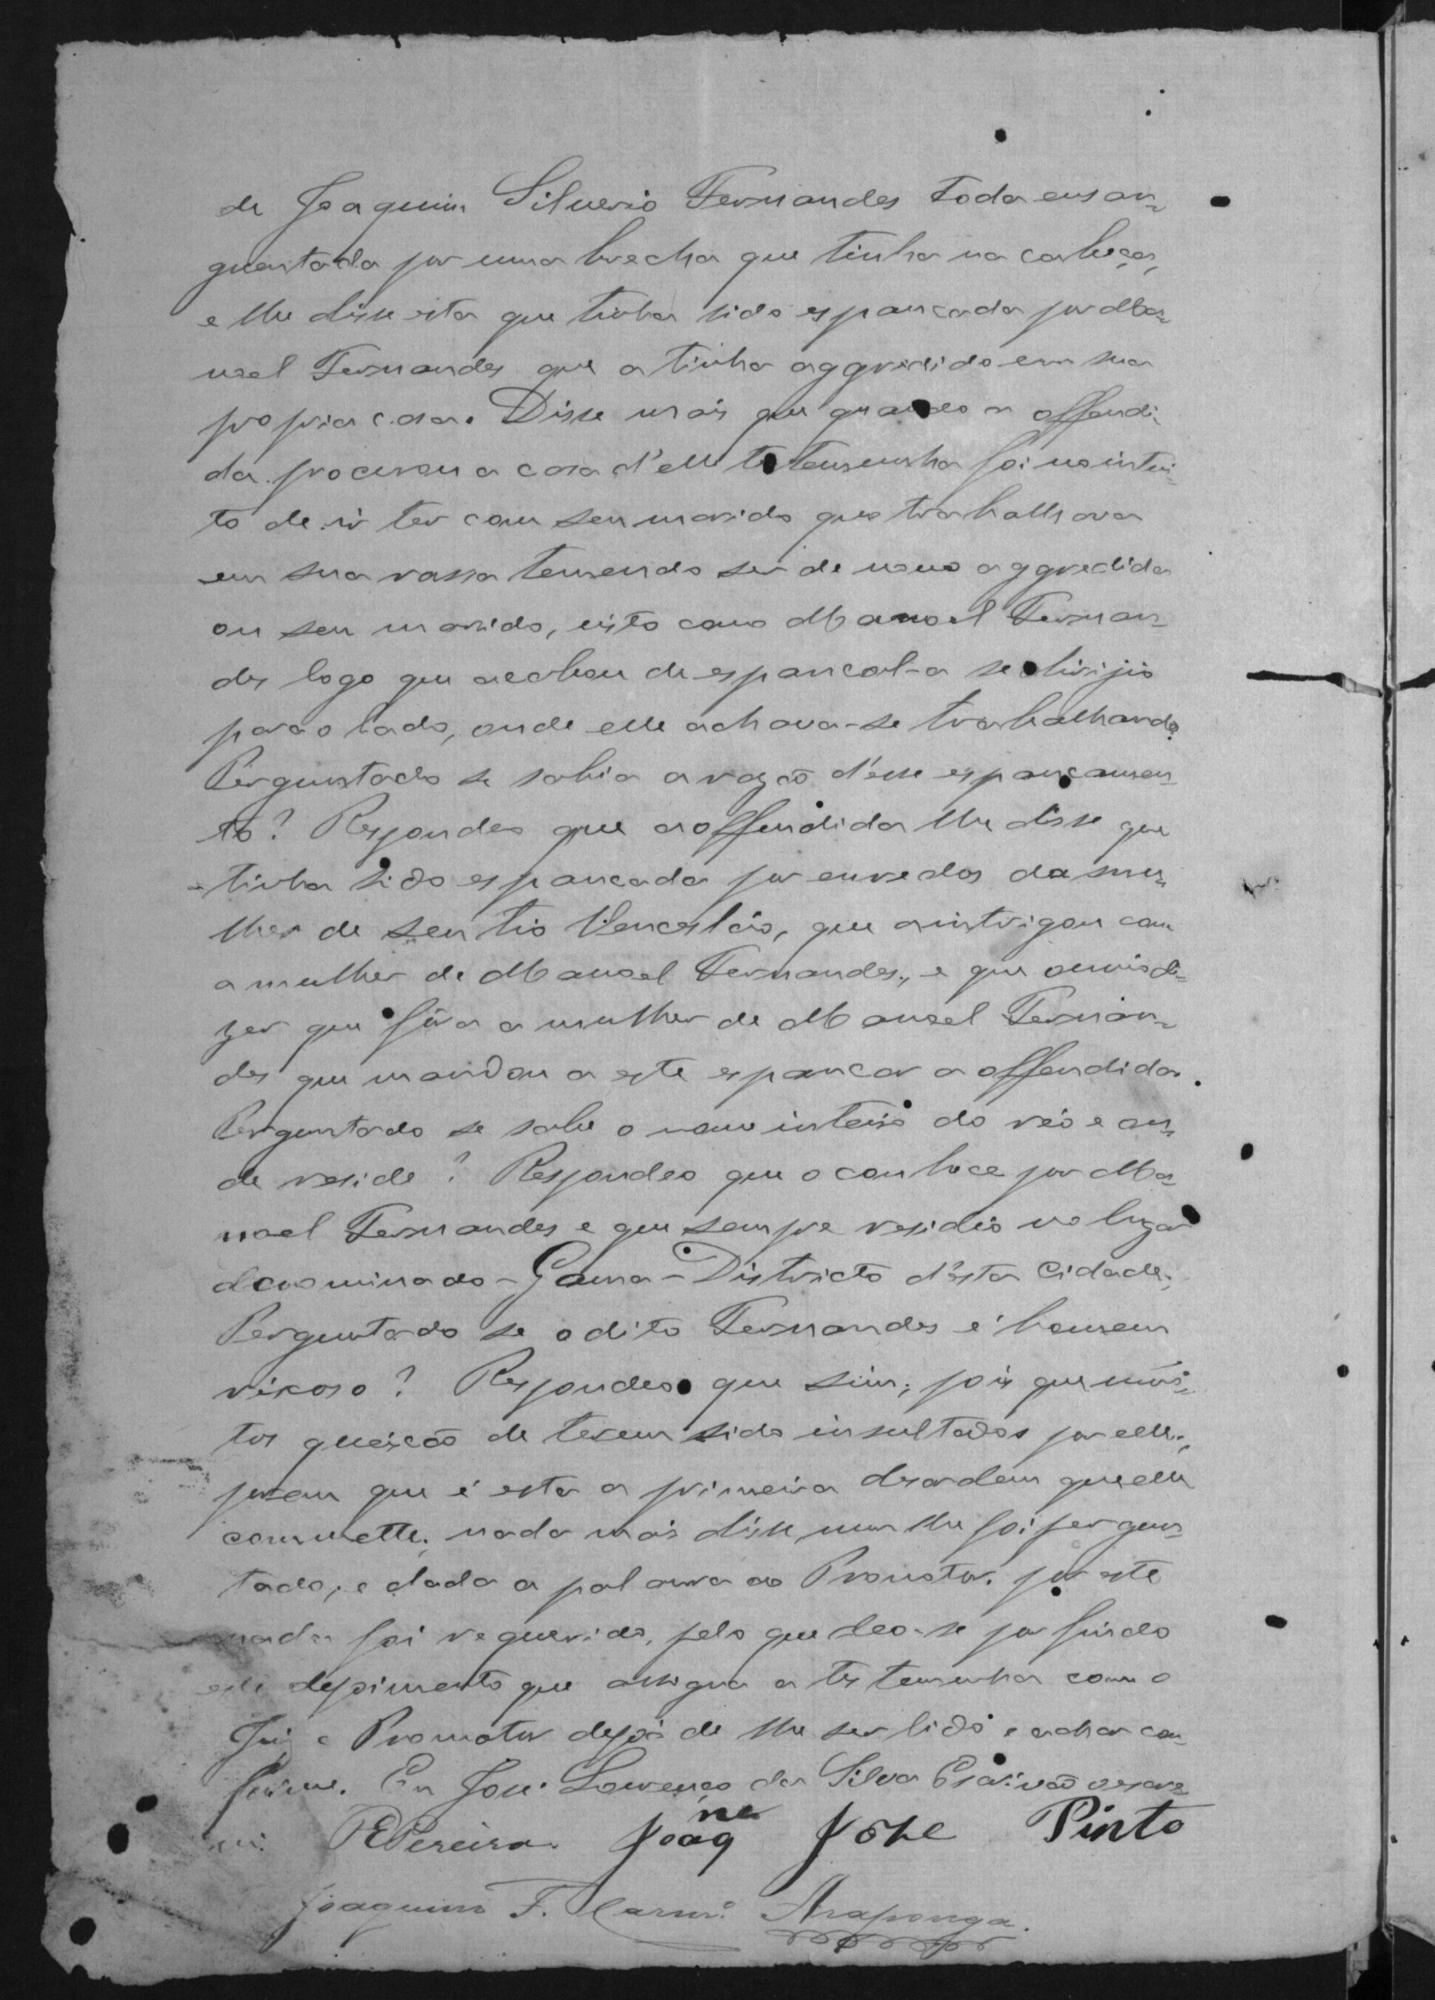 de Joaquim Silverio Fernandes toda ensan-
guentada por uma brecha que tinha na cabeça,
e lhe disse esta que tinha sido espancada por Ma-
noel Fernandes que a tinha aggredido em sua
propria casa. Disse mais que quando a offendi-
da procurou a casa d'elle testemunha foi no intui-
to de ir ter com seu marido que trabalhava
em sua rassa temendo ser de novo aggredida
ou seu marido, visto como Manoel Fernan-
des logo que acabou de espancal-a se dirijio
para o lado, onde elle achava-se trabalhando.
Perguntado se sabia a razão d'esse espancamen-
to? Respondeo que a offendida lhe disse que
tinha sido espancada por enredos da mu-
lher de seu tio Vencesláo, que a intrigou com
a mulher de Manoel Fernandes, e que ouvio di-
zer que fôra a mulher de Manoel Fernan-
des que mandou a este espancar a offendida.
Perguntado se sabe o nome inteiro do réo e on-
de reside? Respondeo que o conhece por Ma-
noel Fernandes e que sempre residio no lugar
denominado - Gama - Districto d'esta Cidade;
Perguntado se o dito Fernandes é homem
rixoso? Respondeo que sim; pois que mui-
tos queixão de terem sido insultados por elle;
porem que é esta a primeira desordem que elle
commette; nada mais disse, nem lhe foi pergun-
tado, e dada a palavra ao Promotor. por este
nada foi requerido, pelo que deo-se por findo
este depoimento que assigna a testemunha com o
Juiz e Promotor depois de lhe ser lido e achar con-
forme. Eu José Lourenço da Silva Escrivão o escre-
vi. REPereira. Joaqne José Pinto
Joaquim F. Araponga.